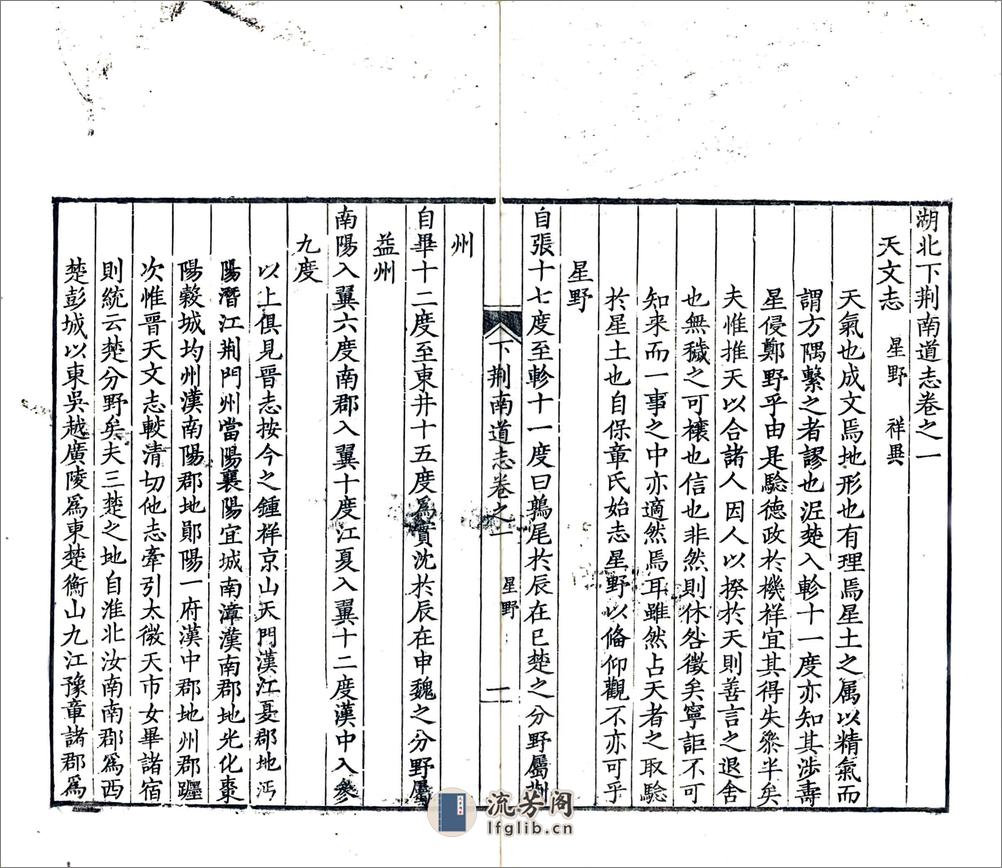 湖北下荆南道志卷之一
天文志 星野 祥異
天氣也成文焉地形也有理焉星土之属以精氣而
謂方隅繫之者謬也泥楚入軫十一度亦知其涉壽
星侵鄭野乎由是驗德政於機祥宜其得失叅半矣
夫惟推天以合諸人因人以揆於天則善言之退舍
也無穢之可禳也信也非然則休咎徵矣寧詎不可
知來而一事之中亦適然焉耳雖然占天者之取驗
於星土也自保章氏始志星野以偹仰觀不亦可乎
星野
自張十七度至軫十一度曰鶉尾於辰在巳楚之分野屬荆
下荆南道志卷之一 星野 一
州
自畢十二度至東井十五度爲實沈於辰在申魏之分野屬
益州
南陽入翼六度南郡入翼十度江夏入翼十二度漢中入參
九度
以上俱見晉志按今之鍾祥京山天門漢江夏郡地沔
陽潛江荆門州當陽襄陽宜城南漳漢南郡地光化棗
陽穀城均州漢南陽郡地鄖陽一府漢中郡地州郡躔
次惟晉天文志較清切他志牽引太微天市女畢諸宿
則統云楚分野矣夫三楚之地自淮北汝南南郡爲西
楚彭城以東吳越廣陵爲東楚衡山九江豫章諸郡爲
流芳阁
lfglib.cn